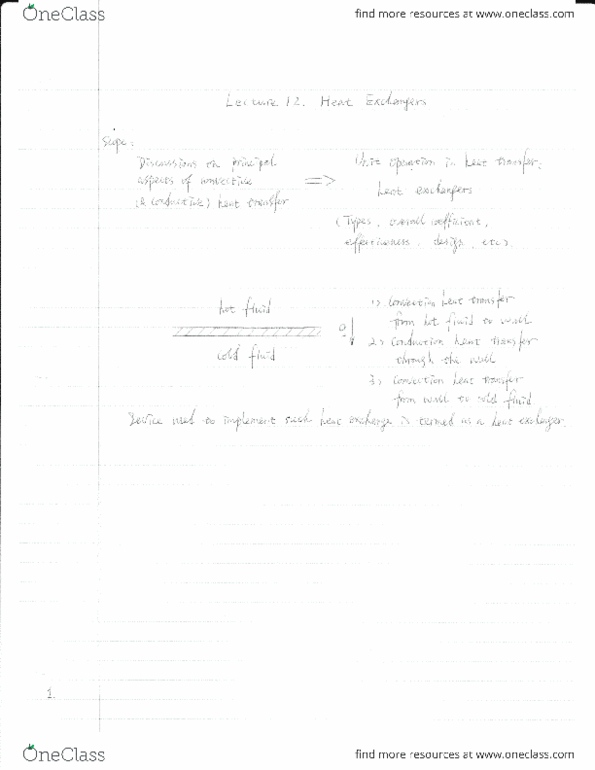 OneClass
find more resources at www.oneclass.com
Lecture 12. Heat Exchangers
Scope:
Discussions on principal
aspects of convective
(& conductive) heat transfer
⇒
Unit operation in heat transfer:
heat exchangers
(Types, overall coefficient,
effectiveness, design, etc).
hot fluid
cold fluid
Q
1) Convection heat transfer
from hot fluid to wall
2) Conduction heat transfer
through the wall
3) Convection heat transfer
from wall to cold fluid
Device used to implement such heat exchange is termed as a heat exchanger.
1
OneClass
find more resources at www.oneclass.com